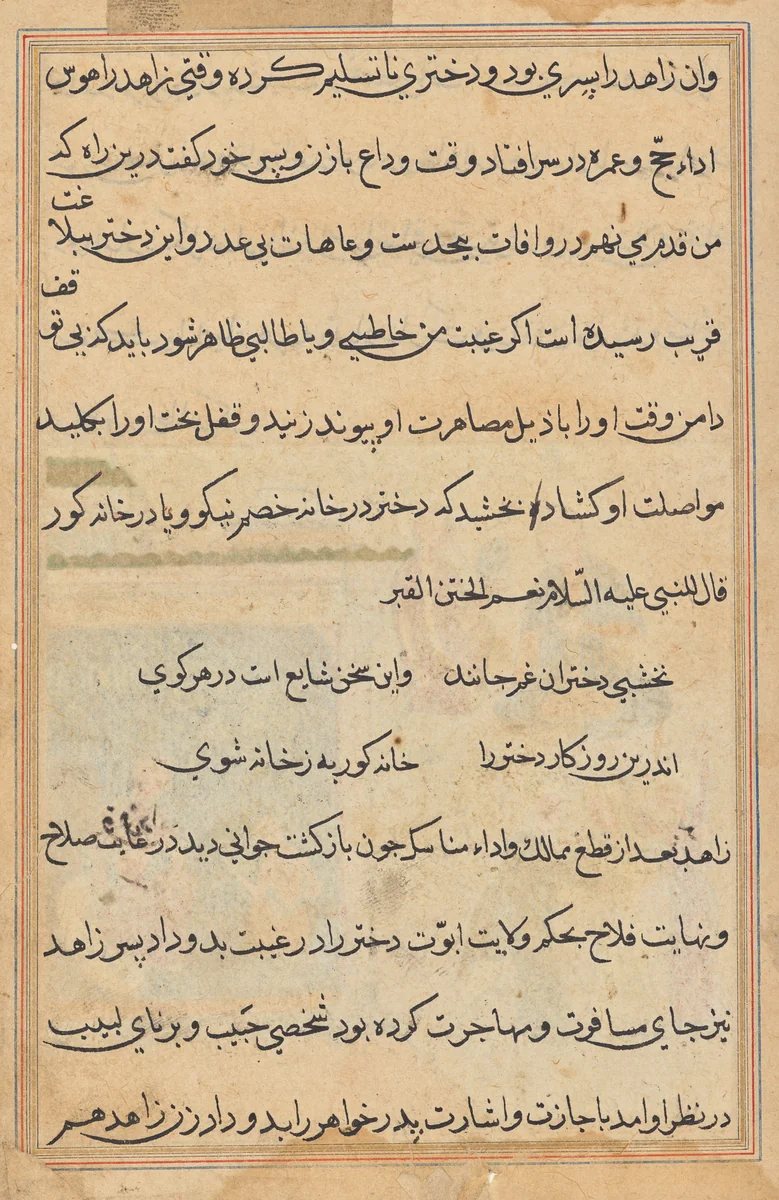 وان زاهد را پسری بود و دختری نا تسلیم کرده وقتی زاهد را هوس
اداء حجّ و عمره در سر افتاد وقت وداع با زن و پسر خود کفت درین راه که
من قدم می نهم درو افات بیحدست و عاهات بی عدد و این دختر ببلاغت
قریب رسیده است اکر غیبت من خاطبی و یا طالبی ظاهر شود باید که بی توقف
دامن وقت او را با ذیل مصاهرت او پیوند زنید و قفل بخت او را بکلید
مواصلت او کشاده بخشید که دختر در خانه خصم نیکو و یا در خانه کور
قال للنبی علیه السّلام نعم الختن القبر
نخشبی دختران غم جانند واین سخن شایع است در هر کوی
اندرین روزکار دختر را خانه کور به ز خانه شوی
زاهد بعد از قطع ممالک و اداء مناسک جون باز کشت جوانی دید در غایت صلاح
و نهایت فلاح بحکم ولایت ابوّت دختر را در غیبت بدو داد پسر زاهد
نیز جای مسافرت و مهاجرت کرده بود شخصی حَبیب و برنای لبیب
در نظر او امد باجازت و اشارت پدر خواهر را بدو داد زن زاهد هم